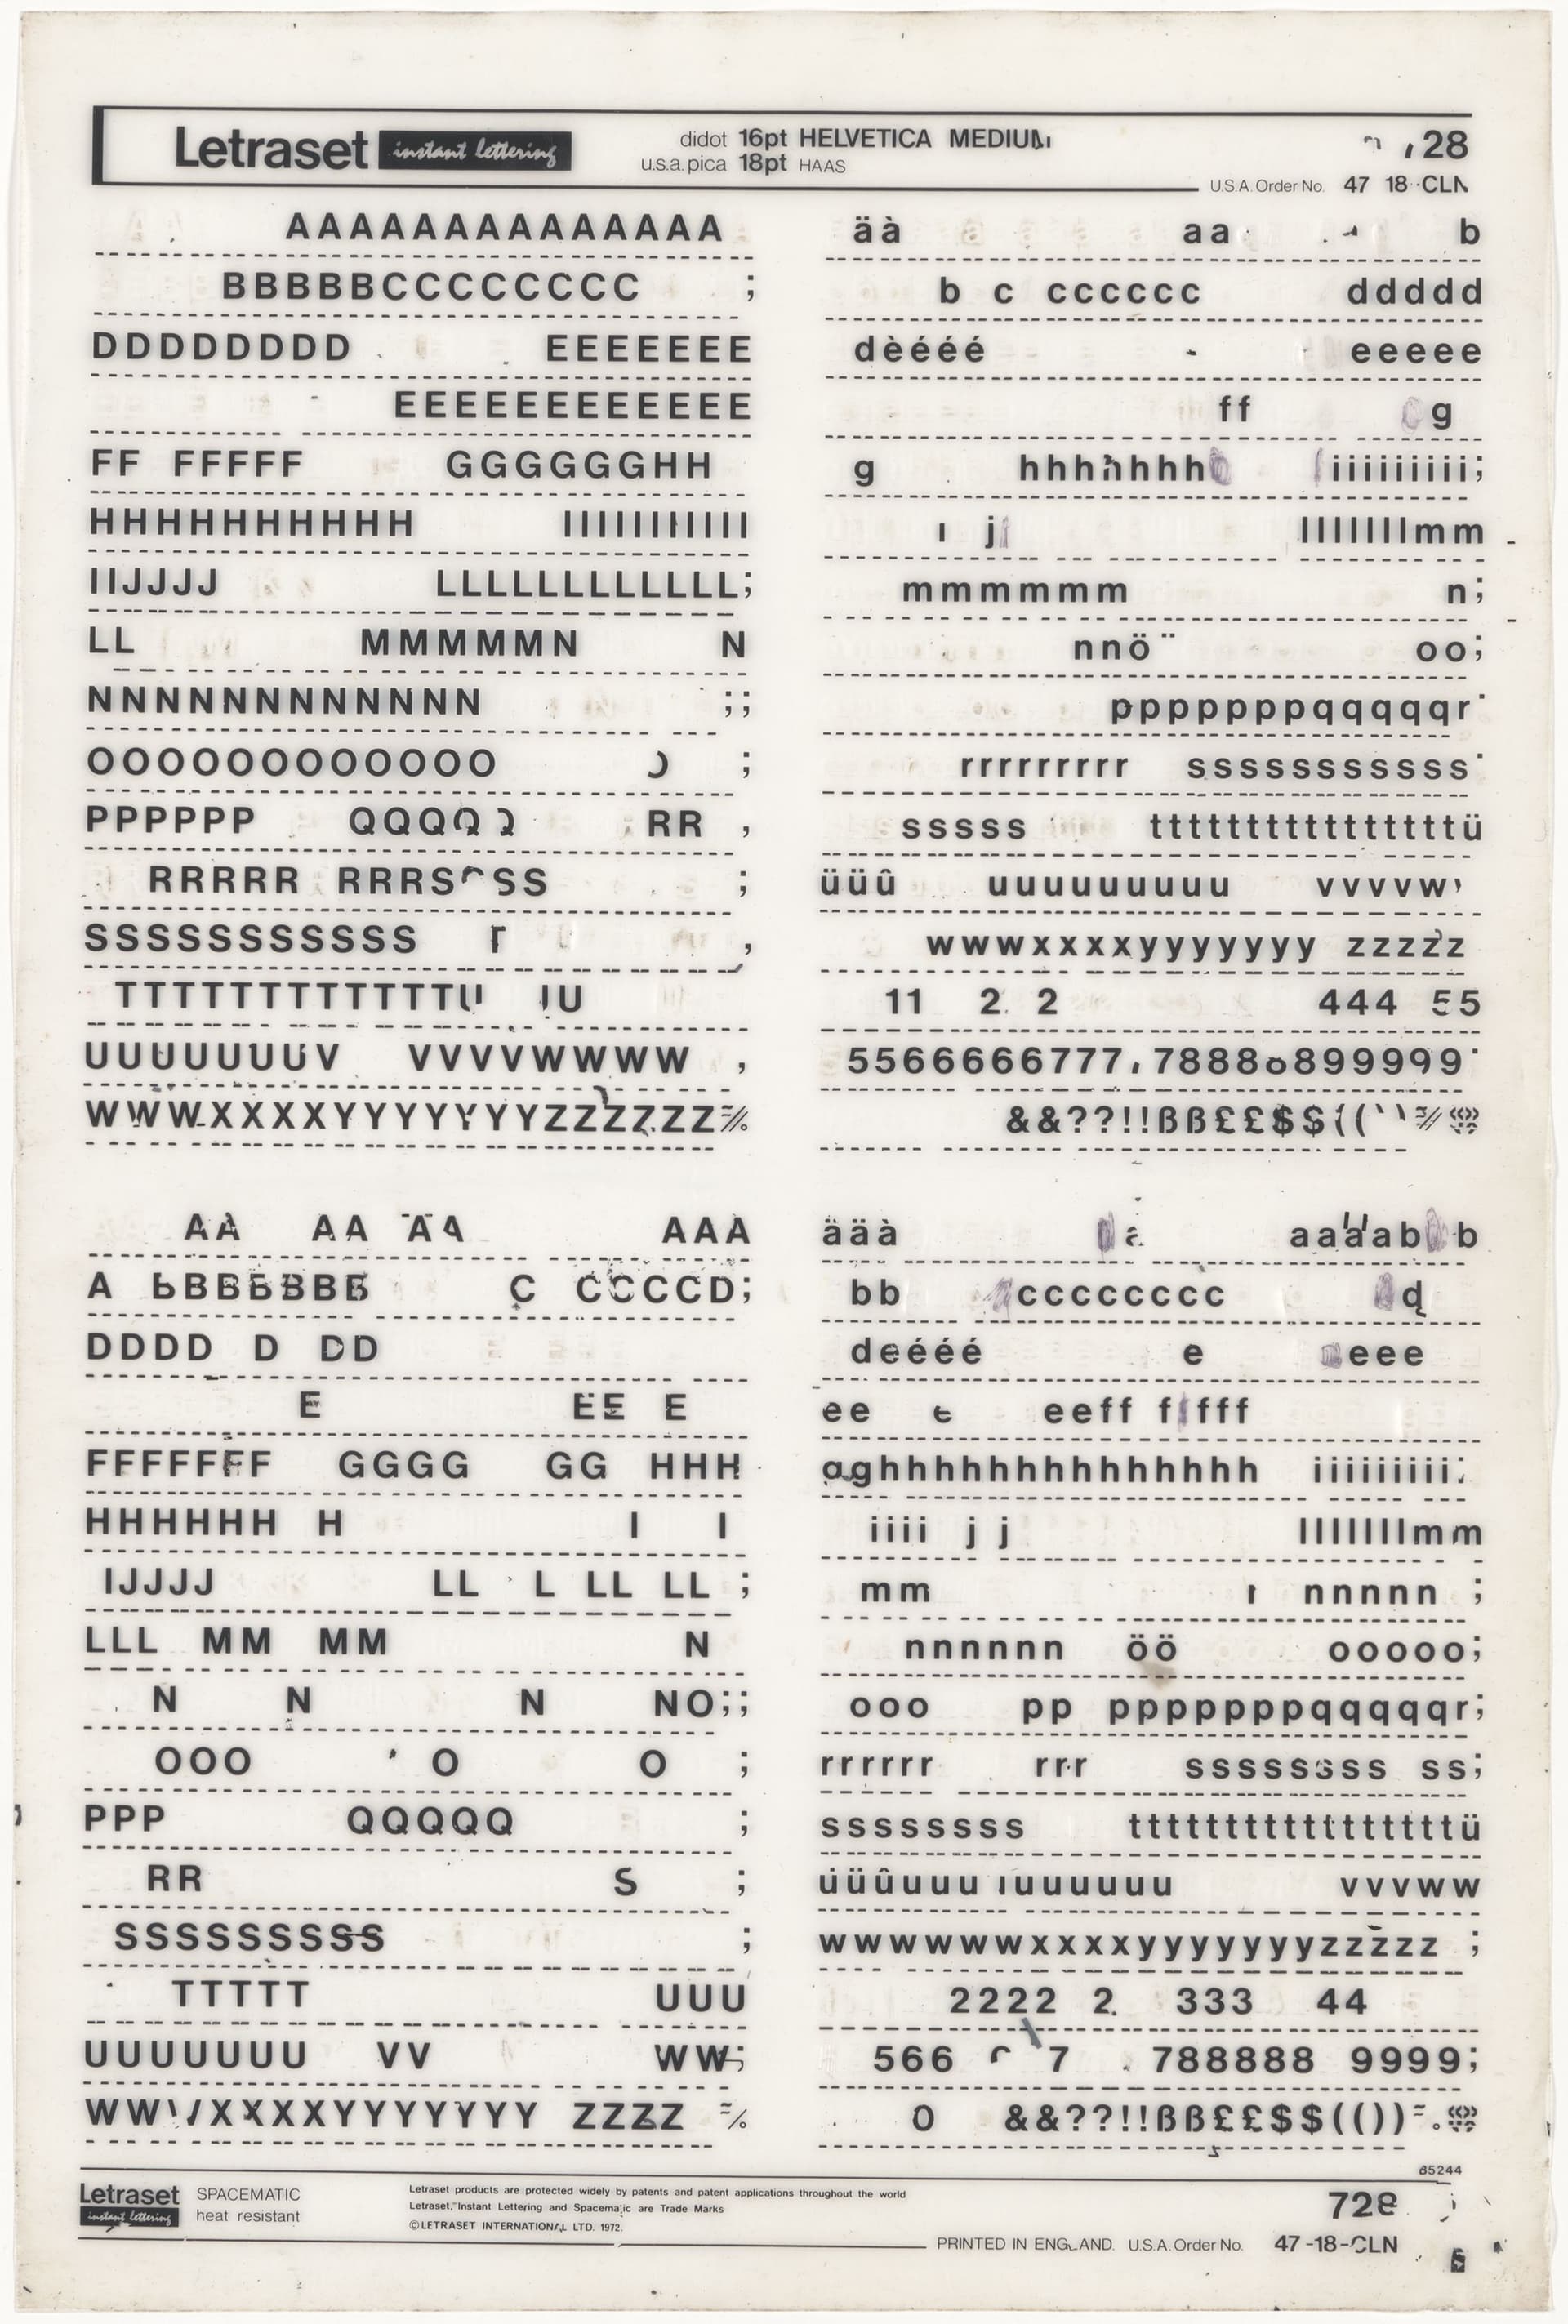 Letraset instant lettering
didot 16pt HELVETICA MEDIUM
u.s.a. pica 18pt HAAS
28
U.S.A. Order No. 47 18-CLN
AAAAAAAAAAAAAA
BBBBBCCCCCCCC ;
DDDDDDDD EEEEEEE
EEEEEEEEEEEE
FF FFFFF GGGGGGHH
HHHHHHHHHHH IIIIIIIIIIII
IIJJJJ LLLLLLLLLLLL;
LL MMMMMN N
NNNNNNNNNNNN ;;
OOOOOOOOOOOO ;
PPPPPP QQQQ RR ,
RRRRR RRRS SS ;
SSSSSSSSSSS ,
TTTTTTTTTTTTU U
UUUUUUUV VVVVWWWW ,
WWWXXXXYYYYYYYZZZZZZ
äà aa b
b c cccccc ddddd
dèééé eeeee
ff g
g hhhhhhh iiiiiiiii;
j lllllllmm
mmmmmm n;
nnö¨ oo;
pppppppqqqqqr
rrrrrrrrr sssssssssss
sssss ttttttttttttttttü
üüû uuuuuuuuu vvvvw
wwwxxxxyyyyyyy zzzzz
11 2 2 444 55
5566666777 7888899999
&&??!!ßß££$$((
AA AA AA AAA
A BBBBBBB C CCCCCD;
DDDD D DD
E EE E
FFFFFFF GGGG GG HHH
HHHHHH H I I
IJJJJ LL L LL LL ;
LLL MM MM N
N N N NO;;
OOO O O ;
PPP QQQQQ ;
RR S ;
SSSSSSSSS ;
TTTTT UUU
UUUUUUU VV WW;
WW XXXXYYYYYYY ZZZZ
ääà aaaab b
bb cccccccc d
deééé e eee
ee e eeff f fff
aghhhhhhhhhhhhhhh iiiiiiiii;
iiii j j lllllllmm
mm nnnnn ;
nnnnnn öö ooooo;
ooo pp pppppppqqqqqr;
rrrrrr rrr ssssssss ss;
ssssssss tttttttttttttttttü
üüûuuu uuuuuuu vvvww
wwwwwwxxxxyyyyyyyzzzzz ;
2222 2 333 44
566 7 788888 9999;
0 &&??!!ßß££$$(())
65244
Letraset instant lettering
SPACEMATIC
heat resistant
Letraset products are protected widely by patents and patent applications throughout the world
Letraset, "Instant Lettering and Spacematic are Trade Marks
©LETRASET INTERNATIONAL LTD. 1972.
728
PRINTED IN ENGLAND. U.S.A. Order No. 47-18-CLN